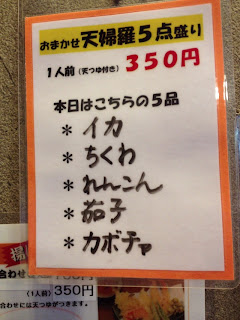 おまかせ 天婦羅5点盛り
1人前(天つゆ付き) 350円
本日はこちらの5品
* イカ
* ちくわ
* れんこん
* 茄子
* カボチャ
合わせ
(1人前) 350円
合わせには天つゆがつきます。